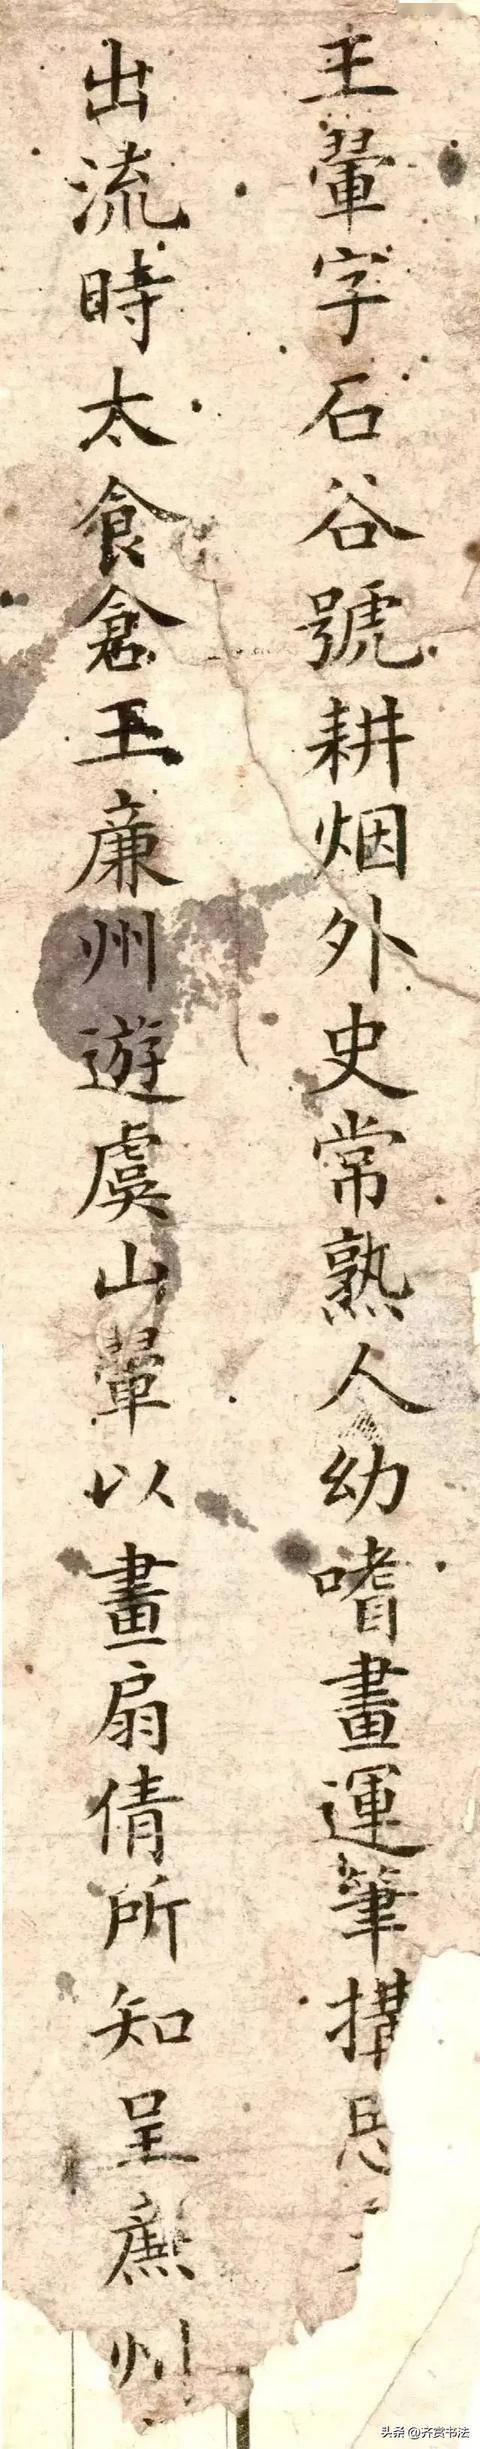 王翬字石谷號耕烟外史常熟人幼嗜畫運筆搆思
出流時太食倉王廉州遊虞山翬以畫扇倩所知呈廉州
头条 @齐赏书法